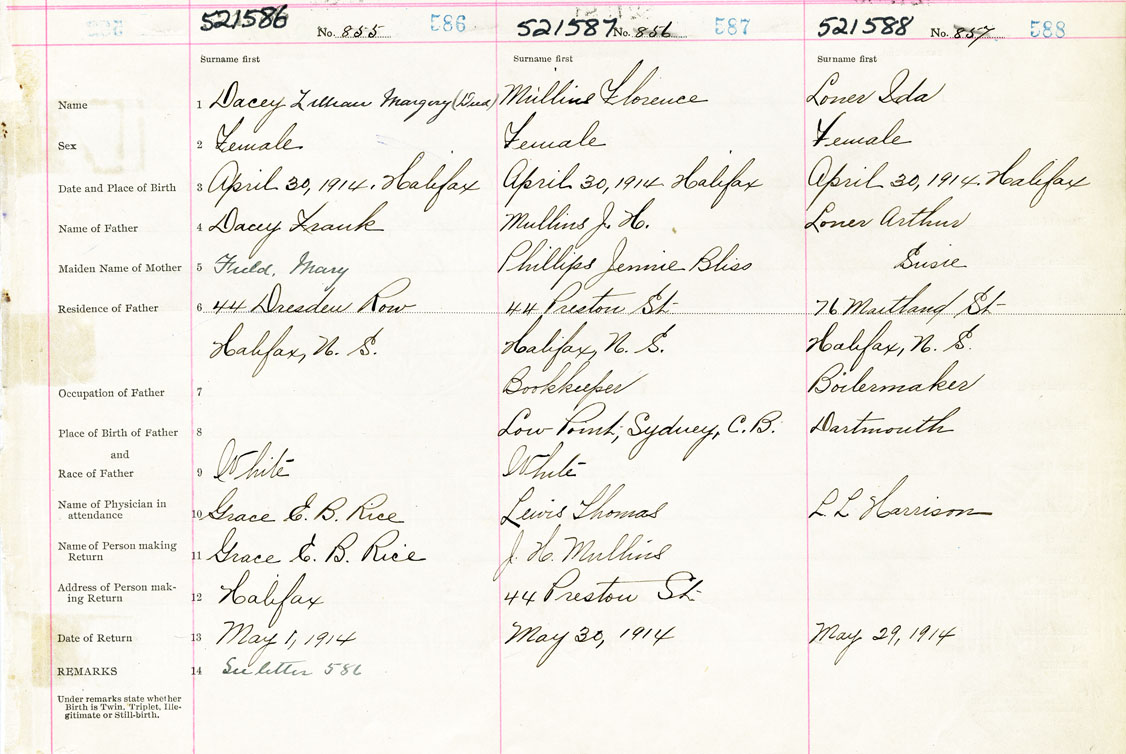 521586 No. 855 586 521587 No. 856 587 521588 No. 857 588
Surname first Surname first Surname first
Name 1 Dacey Lillian Margery (Died) Mullins Florence Loner Ida
Sex 2 Female Female Female
Date and Place of Birth 3 April 30, 1914. Halifax April 30, 1914 Halifax April 30, 1914. Halifax
Name of Father 4 Dacey Frank Mullins J. H. Loner Arthur
Maiden Name of Mother 5 Field, Mary Phillips Jennie Bliss Susie
Residence of Father 6 44 Dresden Row 44 Preston St 76 Maitland St
Halifax, N. S. Halifax, N. S. Halifax, N. S.
Occupation of Father 7 Bookkeeper Boilermaker
Place of Birth of Father 8 Low Point, Sydney, C. B. Dartmouth
and
Race of Father 9 White White
Name of Physician in
attendance 10 Grace E. B. Rice Lewis Thomas L L Harrison
Name of Person making
Return 11 Grace E. B. Rice J. H. Mullins
Address of Person mak-
ing Return 12 Halifax 44 Preston St
Date of Return 13 May 1, 1914 May 30, 1914 May 29, 1914
REMARKS 14 See letter 586
Under remarks state whether
Birth is Twin, Triplet, Ille-
gitimate or Still-birth.